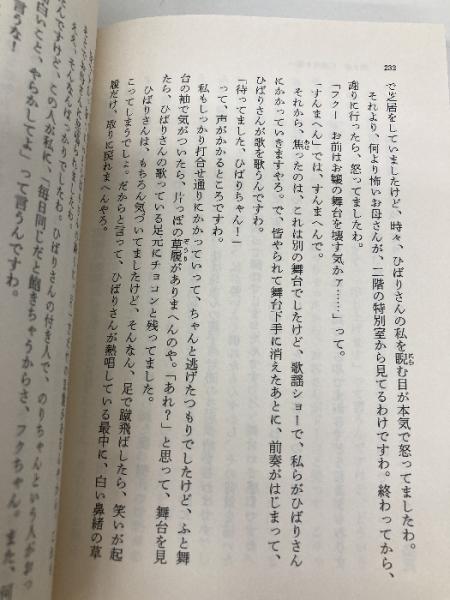 232
で芝居をしていましたけど、時々、ひばりさんの私を睨む目が本気で怒ってましたわ。
それより、何より怖いお母さんが、二階の特別室から見てるわけですわ。終わってから、
謝りに行ったら、怒ってましたわ。
「フクー お前はお嬢の舞台を壊す気かァ……」って。
「すんまへん」では、すんまへんで。
それから、焦ったのは、これは別の舞台でしたけど、歌謡ショーで、私らがひばりさん
にかかっていきますやろ。で、皆やられて舞台下手に消えたあとに、前奏がはじまって、
ひばりさんが歌を歌うんですわ。
「待ってました、ひばりちゃん！」
って、声がかかるところですわ。
私もしっかり打合せ通りにかかっていって、ちゃんと逃げたつもりでしたけど、ふと舞
台の袖で気がついたら、片っぽの草履がありまへんのや。「あれ？」と思って、舞台を見
たら、ひばりさんの歌っている足元にチョコンと残ってました。
ひばりさんは、もちろん気づいてましたけど、そんなん、足で蹴飛ばしたら、笑いが起
こってしまうでしょ。だからと言って、ひばりさんが熱唱している最中に、白い鼻緒の草
履だけ、取りに戻れまへんやろ。
そんなんばっかりでしたわ。ひばりさんの付き人で、のりちゃんという人が
なんですけど、この人が私に、「毎日同じだと飽きちゃうからさ、フクちゃん。また、何
白いこと、やらかしてよ」って言うんですわ。
言うな！